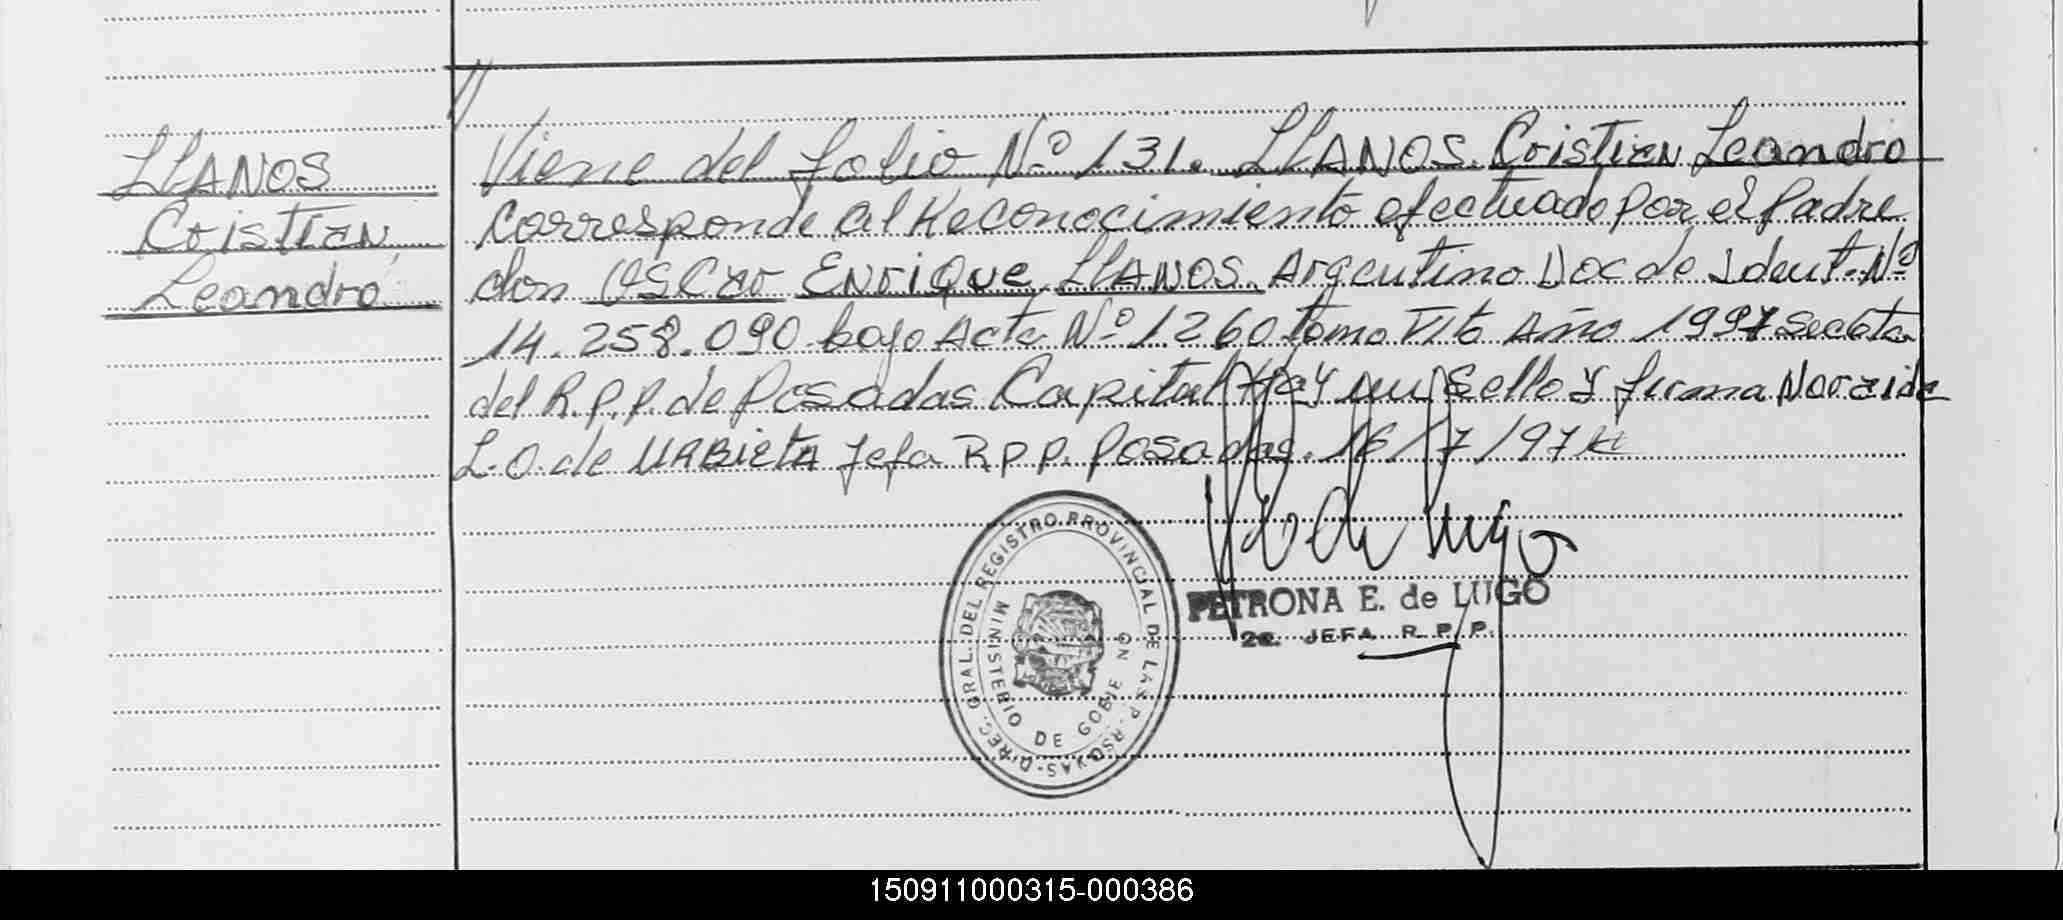 LLANOS
Cristian
Leandro
Viene del folio Nº 131. LLANOS Cristian Leandro
Corresponde al Reconocimiento efectuado por el Padre
don OSCar ENriQue LLANOS. Argentino Doc de Ident. Nº
14.258.090 bajo Acta Nº 1260 tomo VIto Año 1997
del R.P.P. de Posadas Capital Hay un Sello y firma
L.O. de URBIETA Jefa R P P. Posadas. 16/7/97
DIREC. GRAL. DEL REGISTRO PROVINCIAL DE LAS P RSONAS
MINISTERIO DE GOBIE NO
PETRONA E. de LUGO
2a. JEFA R. P. P.
150911000315-000386